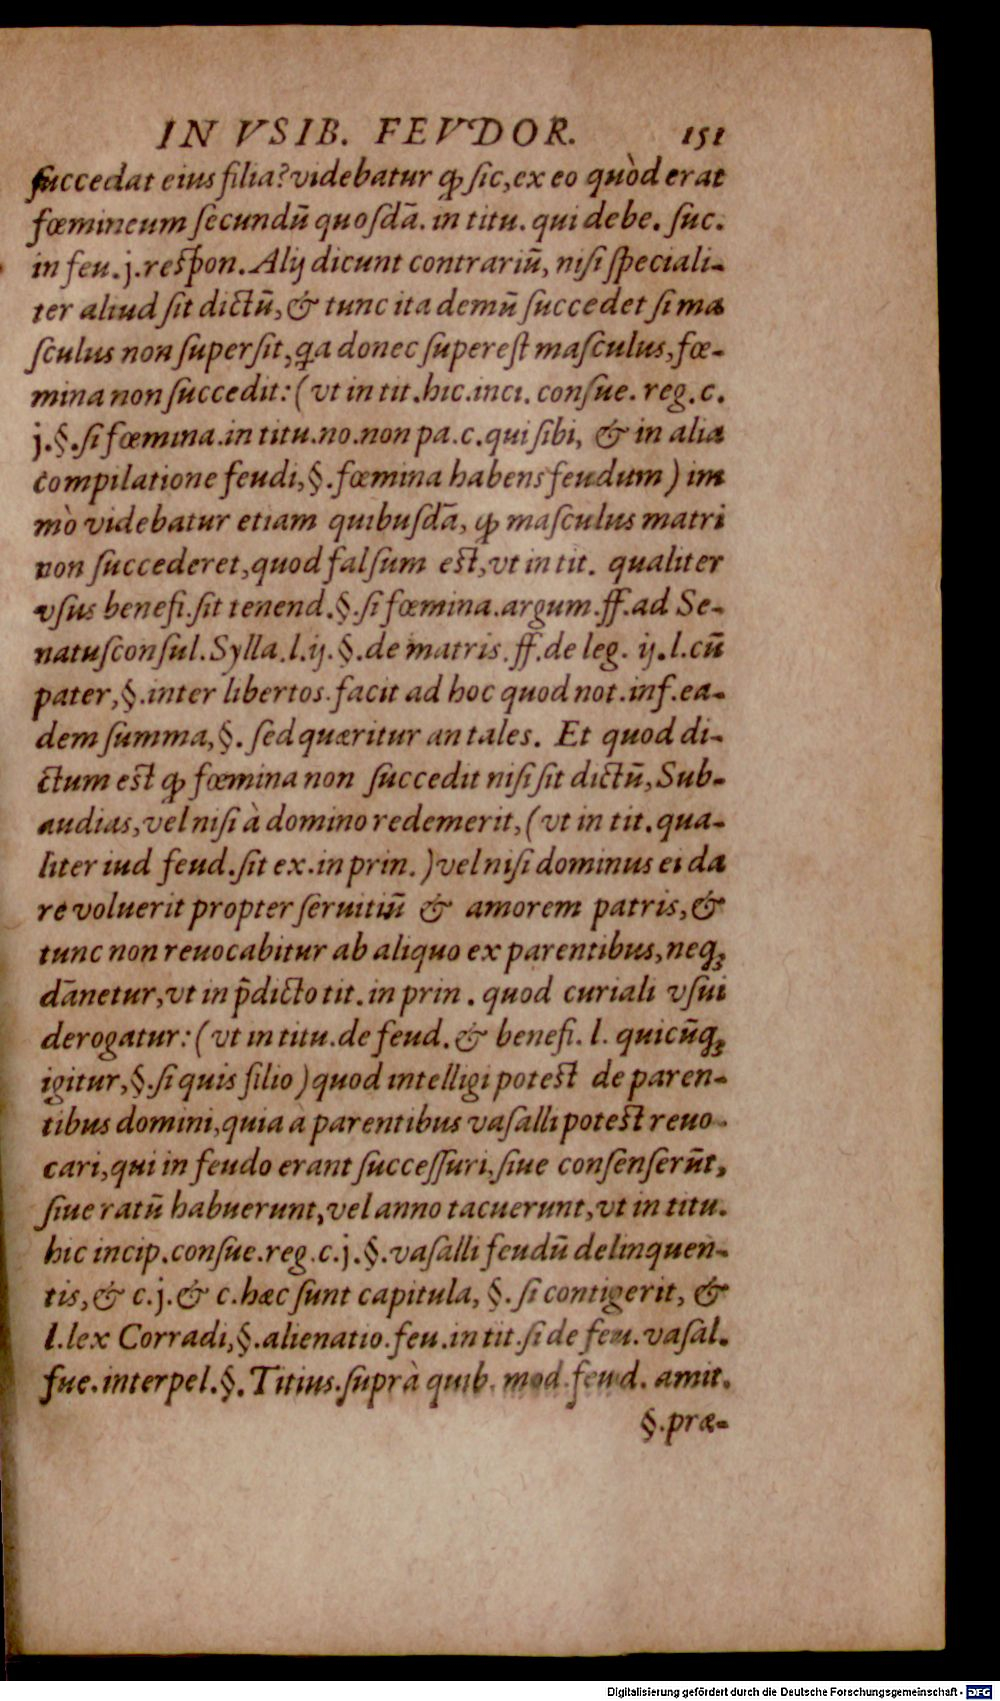 IN VSIB. FEVDOR. 151
ſuccedat eius filia? videbatur ꝙ ſic, ex eo quòd erat
fœmineum ſecundũ quoſdã. in titu. qui debe. ſuc.
in feu. j. reſpon. Alij dicunt contrariũ, niſi ſpeciali-
ter aliud ſit dictũ, & tunc ita demũ ſuccedet ſi ma
ſculus non ſuperſit, q̃a donec ſupereſt maſculus, fœ-
mina non ſuccedit: (vt in tit. hic. inci. conſue. reg. c.
j. §. ſi fœmina. in titu. no. non pa. c. qui ſibi, & in alia
compilatione feudi, §. fœmina habens feudum) im
mò videbatur etiam quibuſdã, ꝙ maſculus matri
non ſuccederet, quod falſum eſt, vt in tit. qualiter
vſus benefi. ſit tenend. §. ſi fœmina. argum. ff. ad Se-
natuſconſul. Sylla. l. ij. §. de matris. ff. de leg. ij. l. cũ
pater, §. inter libertos. facit ad hoc quod not. inf. ea-
dem ſumma, §. ſed quæritur an tales. Et quod di-
ctum eſt ꝙ fœmina non ſuccedit niſi ſit dictũ, Sub-
audias, vel niſi à domino redemerit, (vt in tit. qua-
liter iud feud. ſit ex. in prin.) vel niſi dominus ei da
re voluerit propter ſeruitiũ & amorem patris, &
tunc non reuocabitur ab aliquo ex parentibus, neq;
dãnetur, vt in p̃dicto tit. in prin. quod curiali vſui
derogatur: (vt in titu. de feud. & benefi. l. quicũq;
igitur, §. ſi quis filio) quod intelligi poteſt de paren-
tibus domini, quia à parentibus vaſalli poteſt reuo-
cari, qui in feudo erant ſucceſſuri, ſiue conſenſerũt,
ſiue ratũ habuerunt, vel anno tacuerunt, vt in titu.
hic incip. conſue. reg. c. j. §. vaſalli feudũ delinquen-
tis, & c. j. & c. hæc ſunt capitula, §. ſi contigerit, &
l. lex Corradi, §. alienatio. feu. in tit. ſi de feu. vaſal.
fue. interpel. §. Titius. ſuprà quib. mod. feud. amit.
§. præ-
Digitalisierung gefördert durch die Deutsche Forschungsgemeinschaft - DFG